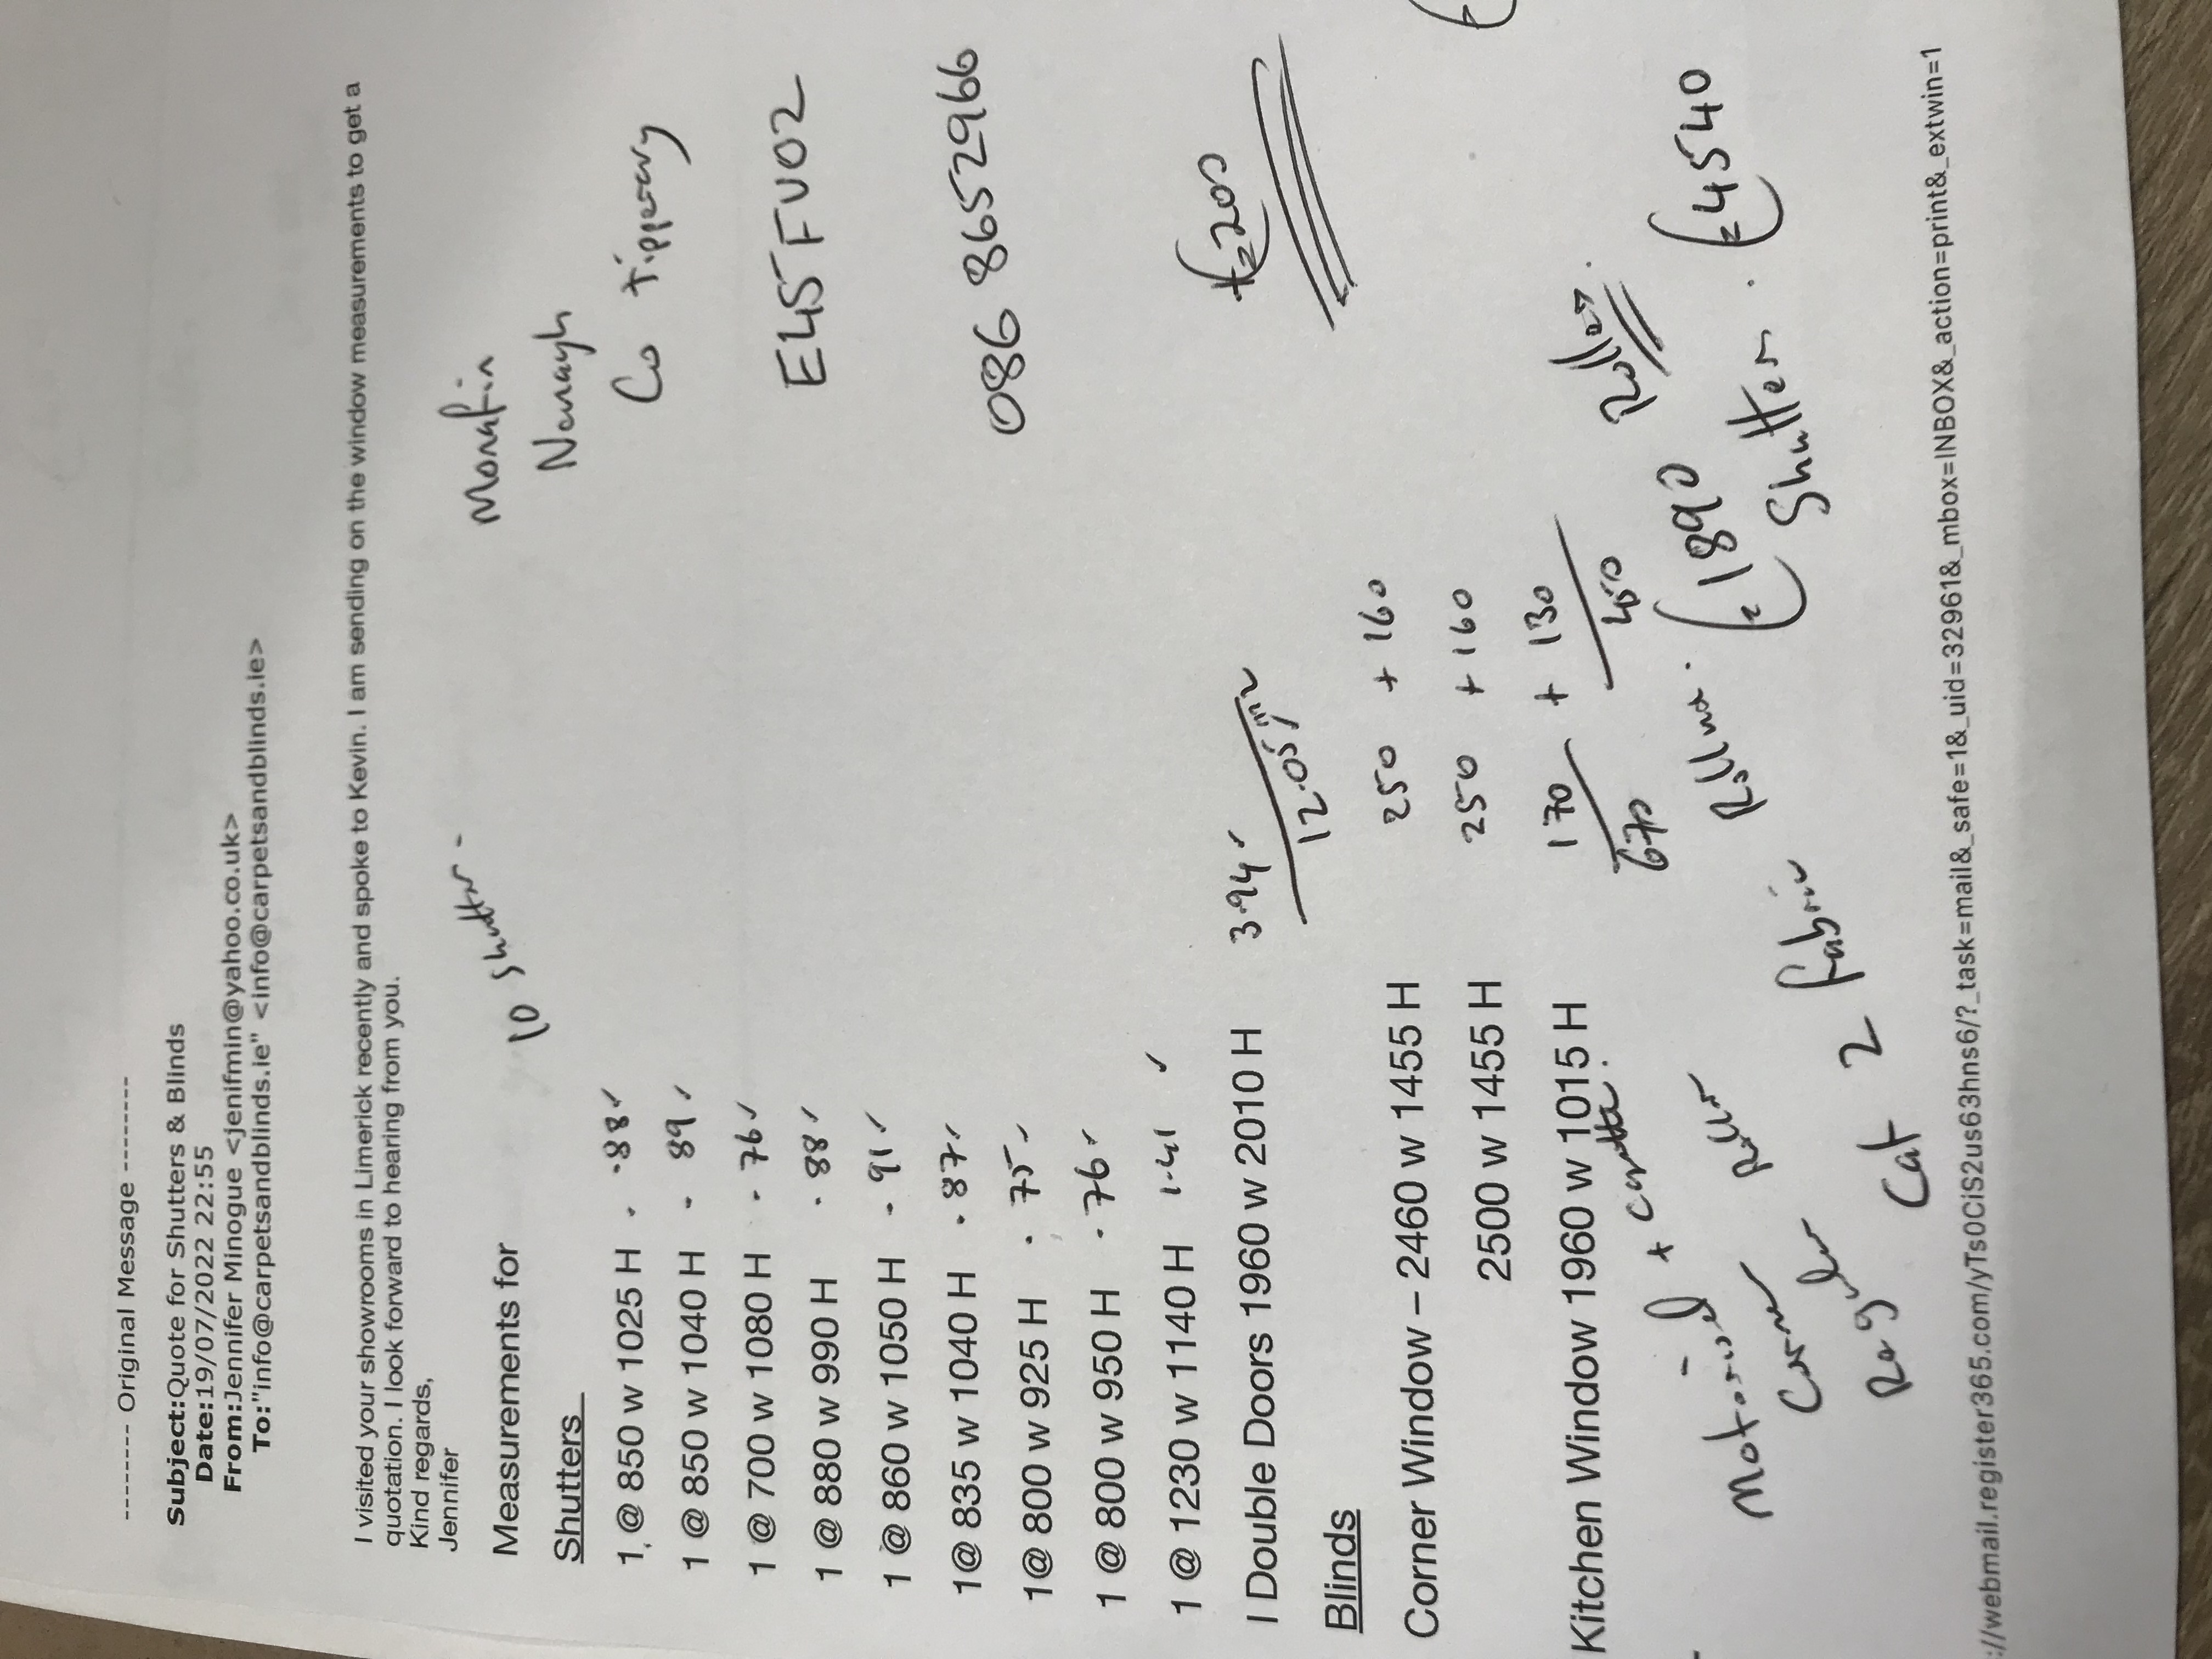 -------- Original Message --------
Subject:Quote for Shutters & Blinds
Date:19/07/2022 22:55
From:Jennifer Minogue <jenifmin@yahoo.co.uk>
To:"info@carpetsandblinds.ie" <info@carpetsandblinds.ie>
I visited your showrooms in Limerick recently and spoke to Kevin. I am sending on the window measurements to get a
quotation. I look forward to hearing from you.
Kind regards,
Jennifer
Measurements for
10 Shutters -
Monafin
Nenagh
Co Tipperary
E45 FV02
086 8652966
Shutters
1 @ 850 w 1025 H - .88 ✓
1 @ 850 w 1040 H - 89 ✓
1 @ 700 w 1080 H - 76 ✓
1 @ 880 w 990 H . 88 ✓
1 @ 860 w 1050 H - 91 ✓
1@ 835 w 1040 H . 87 ✓
1@ 800 w 925 H . 75 ✓
1 @ 800 w 950 H . 76 ✓
1 @ 1230 w 1140 H 1.41 ✓
I Double Doors 1960 w 2010 H 3.94 ✓
12.05
€200
Blinds
Corner Window – 2460 w 1455 H 250 + 160
2500 w 1455 H 250 + 160
Kitchen Window 1960 w 1015 H 170 + 130
670 450
Roller
Motorised +
€1890
Shutters. €4540
Corner Roller
Regular
Cat 2 Fabric
://webmail.register365.com/yTs0CiS2us63hns6/?_task=mail&_safe=1&_uid=32961&_mbox=INBOX&_action=print&_extwin=1